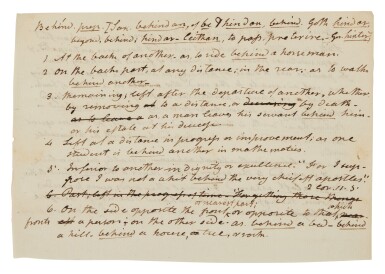 Behind, prep. [Sax. behindan, of be & hindan behind. Goth. hindar,
beyond, behind; hindar-leithan, to pass,
1. At the back of another. as to ride behind a horseman.
2. On the back part, at any distance; in the rear; as to walk
behind another.
3. Remaining; left after the departure of another, whether
by removing to a distance, or by death.
as a man leaves his servant behind him
or his estate at his decease.
4. Left at a distance in progress or improvement, as one
student is behind another in mathematics.
5. Inferior to another in dignity or excellence. "For I sup-
pose I was not a whit behind the very chief apostles."
2 Cor. 11. 5.
6. Part, left in the progress of time.
or nearest part; which
6. On the side opposite the front, or opposite to that
fronts a person; on the other side. as behind a bed - behind
a hill. behind a house, tree, rock